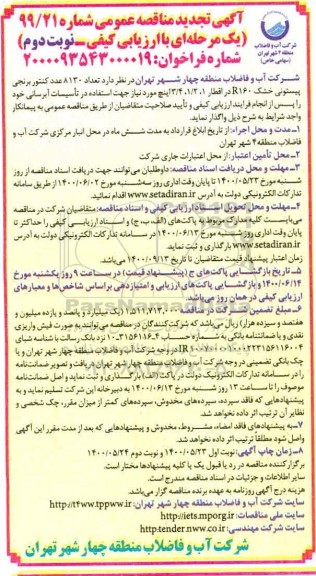 شرکت آب و فاضلاب
منطقه ۴ شهر تهران
(سهامی خاص)
آگهی تجدید مناقصه عمومی شماره ۹۹/۲۱
(یک مرحله‌ای با ارزیابی کیفی ـ نوبت دوم)
شماره فراخوان: ۲۰۰۰۰۹۳۵۴۳۰۰۰۰۱۹
شرکت آب و فاضلاب منطقه چهار شهر تهران در نظر دارد تعداد ۸۱۳۰ عدد کنتور برنجی
پیستونی خشک R۱۶۰ در اقطار
اینچ مورد نیاز جهت استفاده در تأسیسات آبرسانی خود
را پس از انجام فرایند ارزیابی کیفی و تأیید صلاحیت متقاضیان از طریق مناقصه عمومی به پیمانکار
واجد شرایط به شرح ذیل واگذار نماید.
۱ـ مدت و محل اجراء: از تاریخ ابلاغ قرارداد به مدت شش ماه در محل انبار مرکزی شرکت آب و
فاضلاب منطقه ۴ شهر تهران
۲ـ محل تأمین اعتبار: از محل اعتبارات جاری شرکت
۳ـ مهلت و محل دریافت اسناد مناقصه: داوطلبان می‌توانند جهت دریافت اسناد مناقصه از روز
شنبه مورخ ۱۴۰۰/۵/۲۳ تا پایان وقت اداری روز سه‌شنبه مورخ ۱۴۰۰/۰۶/۰۲ از طریق سامانه
تدارکات الکترونیکی دولت به آدرس www.setadiran.ir اقدام نمایند.
۴ـ مهلت و محل تحویل اسناد ارزیابی کیفی و اسناد مناقصه: متقاضیان شرکت در مناقصه
می‌بایست کلیه مدارک مربوط به پاکت‌های (الف، ب، ج) و اسناد ارزیابی کیفی را حداکثر تا
پایان وقت اداری روز شنبه مورخ ۱۴۰۰/۰۶/۱۳ در سامانه تدارکات الکترونیکی دولت به آدرس
www.setadiran.ir بارگذاری و ثبت نماید.
زمان اعتبار پیشنهاد قیمت متقاضیان تا تاریخ ۱۴۰۰/۰۹/۱۳ می‌باشد.
۵ـ تاریخ بازگشایی پاکت‌های ج (پیشنهاد قیمت) در ساعت ۹ روز یکشنبه مورخ
۱۴۰۰/۰۶/۱۴ و بازگشایی پاکت‌های ارزیابی و امتیازدهی براساس شاخص‌ها و معیارهای
ارزیابی کیفی در همان روز می‌باشد.
۶ـ مبلغ تضمین شرکت در مناقصه ۱,۵۱۱,۷۱۳,۰۰۰ (یک میلیارد و پانصد و یازده میلیون و
هفتصد و سیزده هزار) ریال می‌باشد که شرکت‌کنندگان در مناقصه می‌توانند به صورت فیش واریزی
نقدی و یا ضمانتنامه بانکی به شماره حساب
نزد بانک رسالت با شناسه شبای
در وجه شرکت آب و فاضلاب منطقه چهار شهر تهران و یا
چک بانکی تضمینی در وجه شرکت آب و فاضلاب منطقه چهار شهر تهران دریافت و تصویر ضمانت‌نامه
را در سامانه تدارکات الکترونیک دولت در پاکت (الف) بارگذاری و ثبت نماید و اصل ضمانت‌نامه
موصوف را تا ساعت ۱۳ روز شنبه مورخ ۱۴۰۰/۰۶/۱۳ به دبیرخانه این شرکت تسلیم نماید و به
پیشنهادهایی که فاقد سپرده، سپرده‌های مخدوش، سپرده‌های کمتر از میزان مقرر، چک شخصی و
نظایر آن ترتیب اثر داده نخواهد شد.
۷ـ به پیشنهادهای فاقد امضاء، مشروط، مخدوش و پیشنهادهایی که بعد از مدت مقرر این آگهی
وصول شود مطلقاً ترتیب اثر داده نخواهد شد.
۸ـ زمان چاپ آگهی: نوبت اول ۱۴۰۰/۰۵/۲۳ و نوبت دوم ۱۴۰۰/۰۵/۲۴
برگزارکننده مناقصه در رد یا قبول یک یا کلیه پیشنهادها مختار است.
سایر اطلاعات و جزئیات در اسناد مناقصه مندرج است.
هزینه درج آگهی روزنامه به عهده برنده مناقصه گزار می‌باشد.
سایت شرکت آب و فاضلاب منطقه چهار شهر تهران: http://t4ww.tppww.ir
سایت ملی مناقصات: http://iets.mporg.ir
سایت شرکت مهندسی: http:tender.nww.co.ir
شرکت آب و فاضلاب منطقه چهار شهر تهران